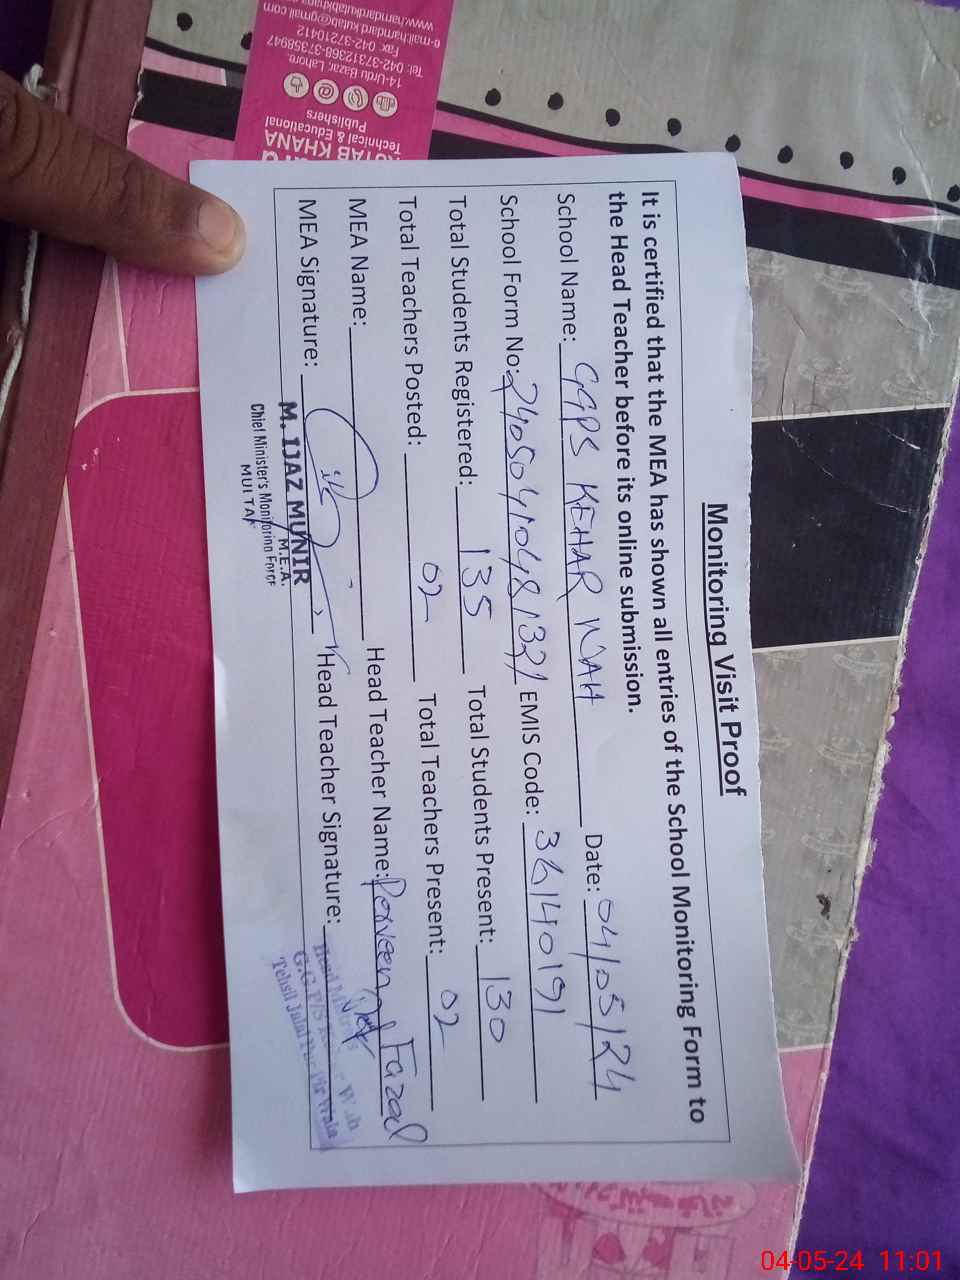 Monitoring Visit Proof
It is certified that the MEA has shown all entries of the School Monitoring Form to
the Head Teacher before its online submission.
School Name: GGPS KEHAR WAH Date: 04/05/24
School Form No: EMIS Code: 36140191
Total Students Registered: 135 Total Students Present: 130
Total Teachers Posted: 02 Total Teachers Present: 02
MEA Name: Head Teacher Name: Parveen Fazal
MEA Signature: Head Teacher Signature:
M. IJAZ MUNIR
M.E.A.
Chief Minister's Monitoring Force
MULTAN
Head Mistress
G.G.P/S Wah
Tehsil Jalal Pur Pir Wala
KUTAB KHANA
Technical & Educational
Publishers
14-Urdu Bazar, Lahore.
Tel: 042-37312368-37358947
Fax: 042-37210412
e-mail:hamdard.kutab@gmail.com
04-05-24 11:01